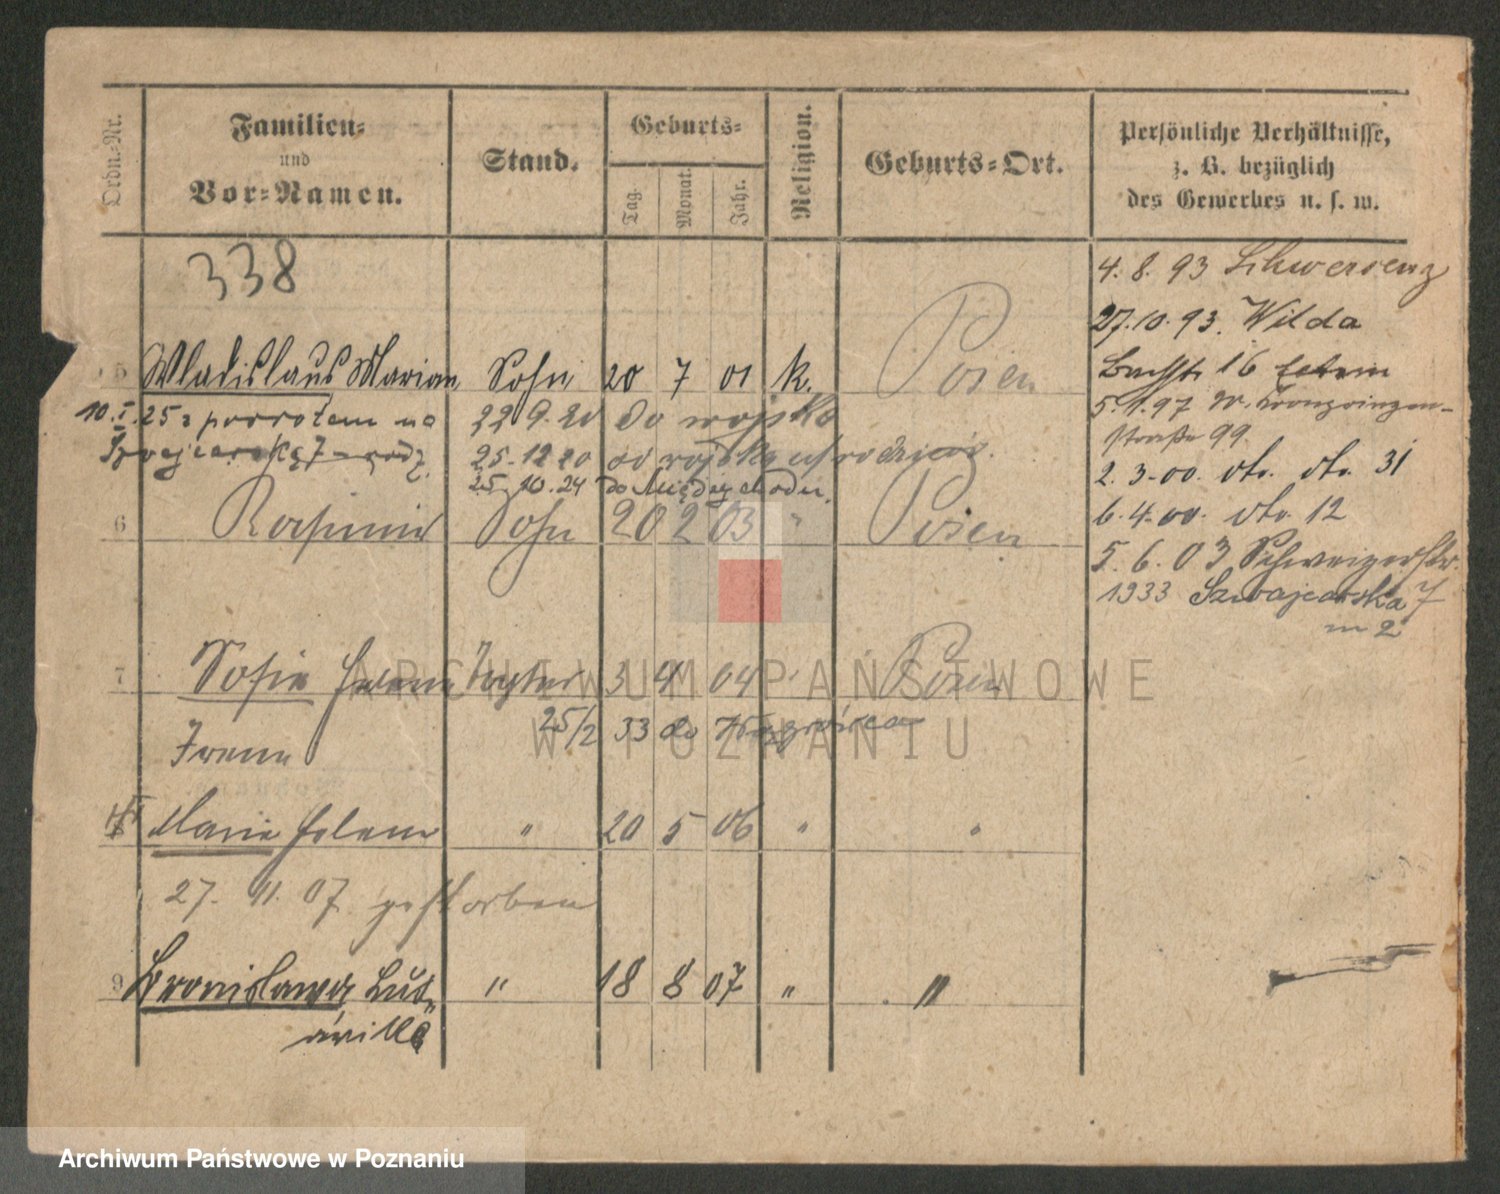 Ordn.-Nr.
Familien-
und
Vor-Namen.
Stand.
Geburts-
Tag.
Monat.
Jahr.
Religion.
Geburts-Ort.
Persönliche Verhältnisse,
z. B. bezüglich
des Gewerbes u. s. w.
338
4. 8. 93 Schwersenz
27.10.93. Wilda
5 Wladislaus Marian Sohn 20 7 01 k. Posen
Bachstr. 16
10.I.25 z powrotem na 22 9. 20 do wojska
5.1.97 Kronprinzen-
straße 99.
Szwajcarską 7 25.12 20 od wojska
2. 3.00. dto. dto. 31
25. 10. 24 do Międzychodu.
6 Kasimir Sohn 20 2 03 " Posen
6.4.00. dto. 12
5. 6. 03 Schweizerstr.
1933 Szwajcarska 7
m 2
7 Sofie Helene Tochter 3 4 04 Posen
25/2 33 do
Irene
8 Marie Helene " 20 5 06 " "
27. 11. 07 gestorben
9 Bronislawa Lud- " 18 8 07 " "
ARCHIWUM PAŃSTWOWE
W POZNANIU
Archiwum Państwowe w Poznaniu